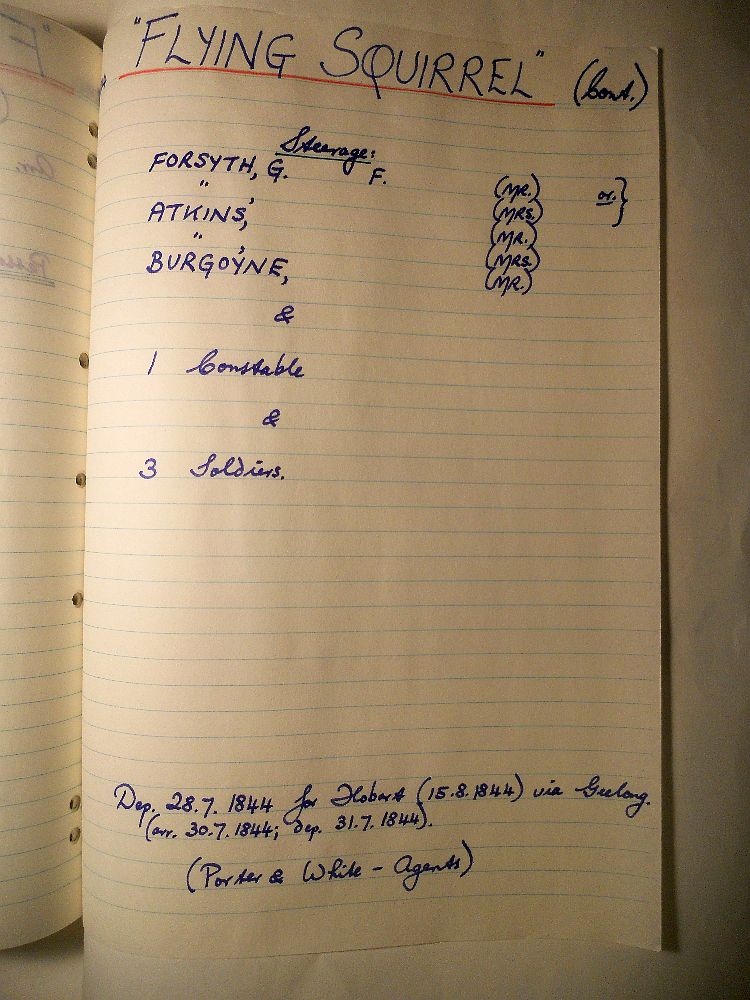 "FLYING SQUIRREL" (Cont.)
Steerage:
FORSYTH, G. F. (MR.) or. }
" , (MRS.)
ATKINS, (MR.)
" , (MRS.)
BURGOYNE, (MR.)
&
1 Constable
&
3 Soldiers.
Dep. 28.7.1844 for Hobart (15.8.1844) via Geelong.
(arr. 30.7.1844; dep. 31.7.1844).
(Porter & White - Agents)